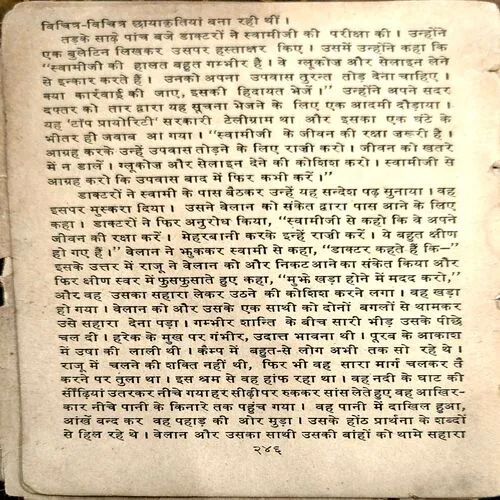 विचित्र-विचित्र छायाकृतियां बना रही थीं।
तड़के साढ़े पांच बजे डाक्टरों ने स्वामीजी की परीक्षा की। उन्होंने
एक बुलेटिन लिखकर उसपर हस्ताक्षर किए। उसमें उन्होंने कहा कि
“स्वामीजी की हालत बहुत गम्भीर है। वे ग्लूकोज और सेलाइन लेने
से इन्कार करते हैं। उनको अपना उपवास तुरन्त तोड़ देना चाहिए।
क्या कार्रवाई की जाए, इसकी हिदायत भेजें।” उन्होंने अपने सदर
दफ्तर को तार द्वारा यह सूचना भेजने के लिए एक आदमी दौड़ाया।
यह ‘टॉप प्रायोरिटी’ सरकारी टेलीग्राम था और इसका एक घंटे के
भीतर ही जवाब आ गया। “स्वामीजी के जीवन की रक्षा जरूरी है।
आग्रह करके उन्हें उपवास तोड़ने के लिए राजी करो। जीवन को खतरे
में न डालें। ग्लूकोज और सेलाइन देने की कोशिश करो। स्वामीजी से
आग्रह करो कि उपवास बाद में फिर कभी करें।”
डाक्टरों ने स्वामी के पास बैठकर उन्हें यह सन्देश पढ़ सुनाया। वह
इसपर मुस्करा दिया। उसने वेलान को संकेत द्वारा पास आने के लिए
कहा। डाक्टरों ने फिर अनुरोध किया, “स्वामीजी से कहो कि वे अपने
जीवन की रक्षा करें। मेहरबानी करके इन्हें राजी करें। ये बहुत क्षीण
हो गए हैं।” वेलान ने झुककर स्वामी से कहा, “डाक्टर कहते हैं कि—”
इसके उत्तर में राजू ने वेलान को और निकट आने का संकेत किया और
फिर क्षीण स्वर में फुसफुसाते हुए कहा, “मुझे खड़ा होने में मदद करो,”
और वह उसका सहारा लेकर उठने की कोशिश करने लगा। वह खड़ा
हो गया। वेलान को और उसके एक साथी को दोनों बगलों से थामकर
उसे सहारा देना पड़ा। गम्भीर शान्ति के बीच सारी भीड़ उसके पीछे
चल दी। हरेक के मुख पर गंभीर, उदात्त भावना थी। पूरब के आकाश
में उषा की लाली थी। कैम्प में बहुत-से लोग अभी तक सो रहे थे।
राजू में चलने की शक्ति नहीं थी, फिर भी वह सारा मार्ग चलकर तै
करने पर तुला था। इस श्रम से वह हांफ रहा था। वह नदी के घाट की
सीढ़ियां उतरकर नीचे गया हर सीढ़ी पर रुककर सांस लेते हुए वह आखिर-
कार नीचे पानी के किनारे तक पहुंच गया। वह पानी में दाखिल हुआ,
आंखें बन्द कर वह पहाड़ की ओर मुड़ा। उसके होंठ प्रार्थना के शब्दों
से हिल रहे थे। वेलान और उसका साथी उसकी बांहों को थामे सहारा
२४६